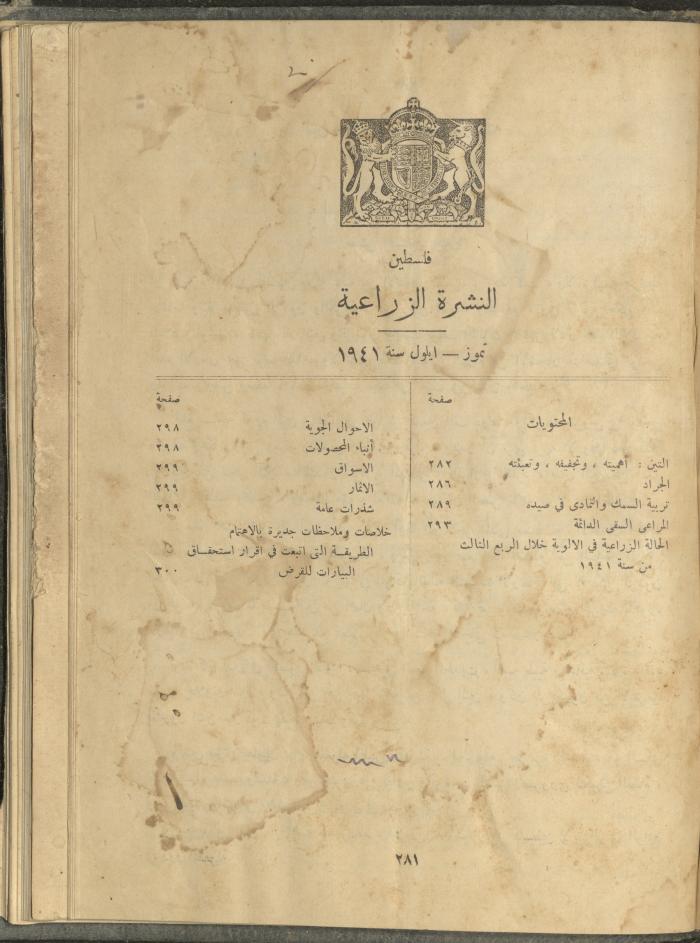 فلسطين
النشرة الزراعية
تموز — ايلول سنة ١٩٤١
صفحة
المحتويات
التين : اهميته ، وتجفيفه ، وتعبئته ٢٨٢
الجراد ٢٨٦
تربية السمك والتمادى في صيده ٢٨٩
المراعى السقى الدائمة ٢٩٣
الحالة الزراعية في الالوية خلال الربع الثالث
من سنة ١٩٤١
صفحة
الاحوال الجوية ٢٩٨
أنباء المحصولات ٢٩٨
الاسواق ٢٩٩
الاثمار ٢٩٩
شذرات عامة ٢٩٩
خلاصات وملاحظات جديرة بالاهتمام
الطريقة التى اتبعت في اقرار استحقاق
البيارات للقرض ٣٠٠
٢٨١